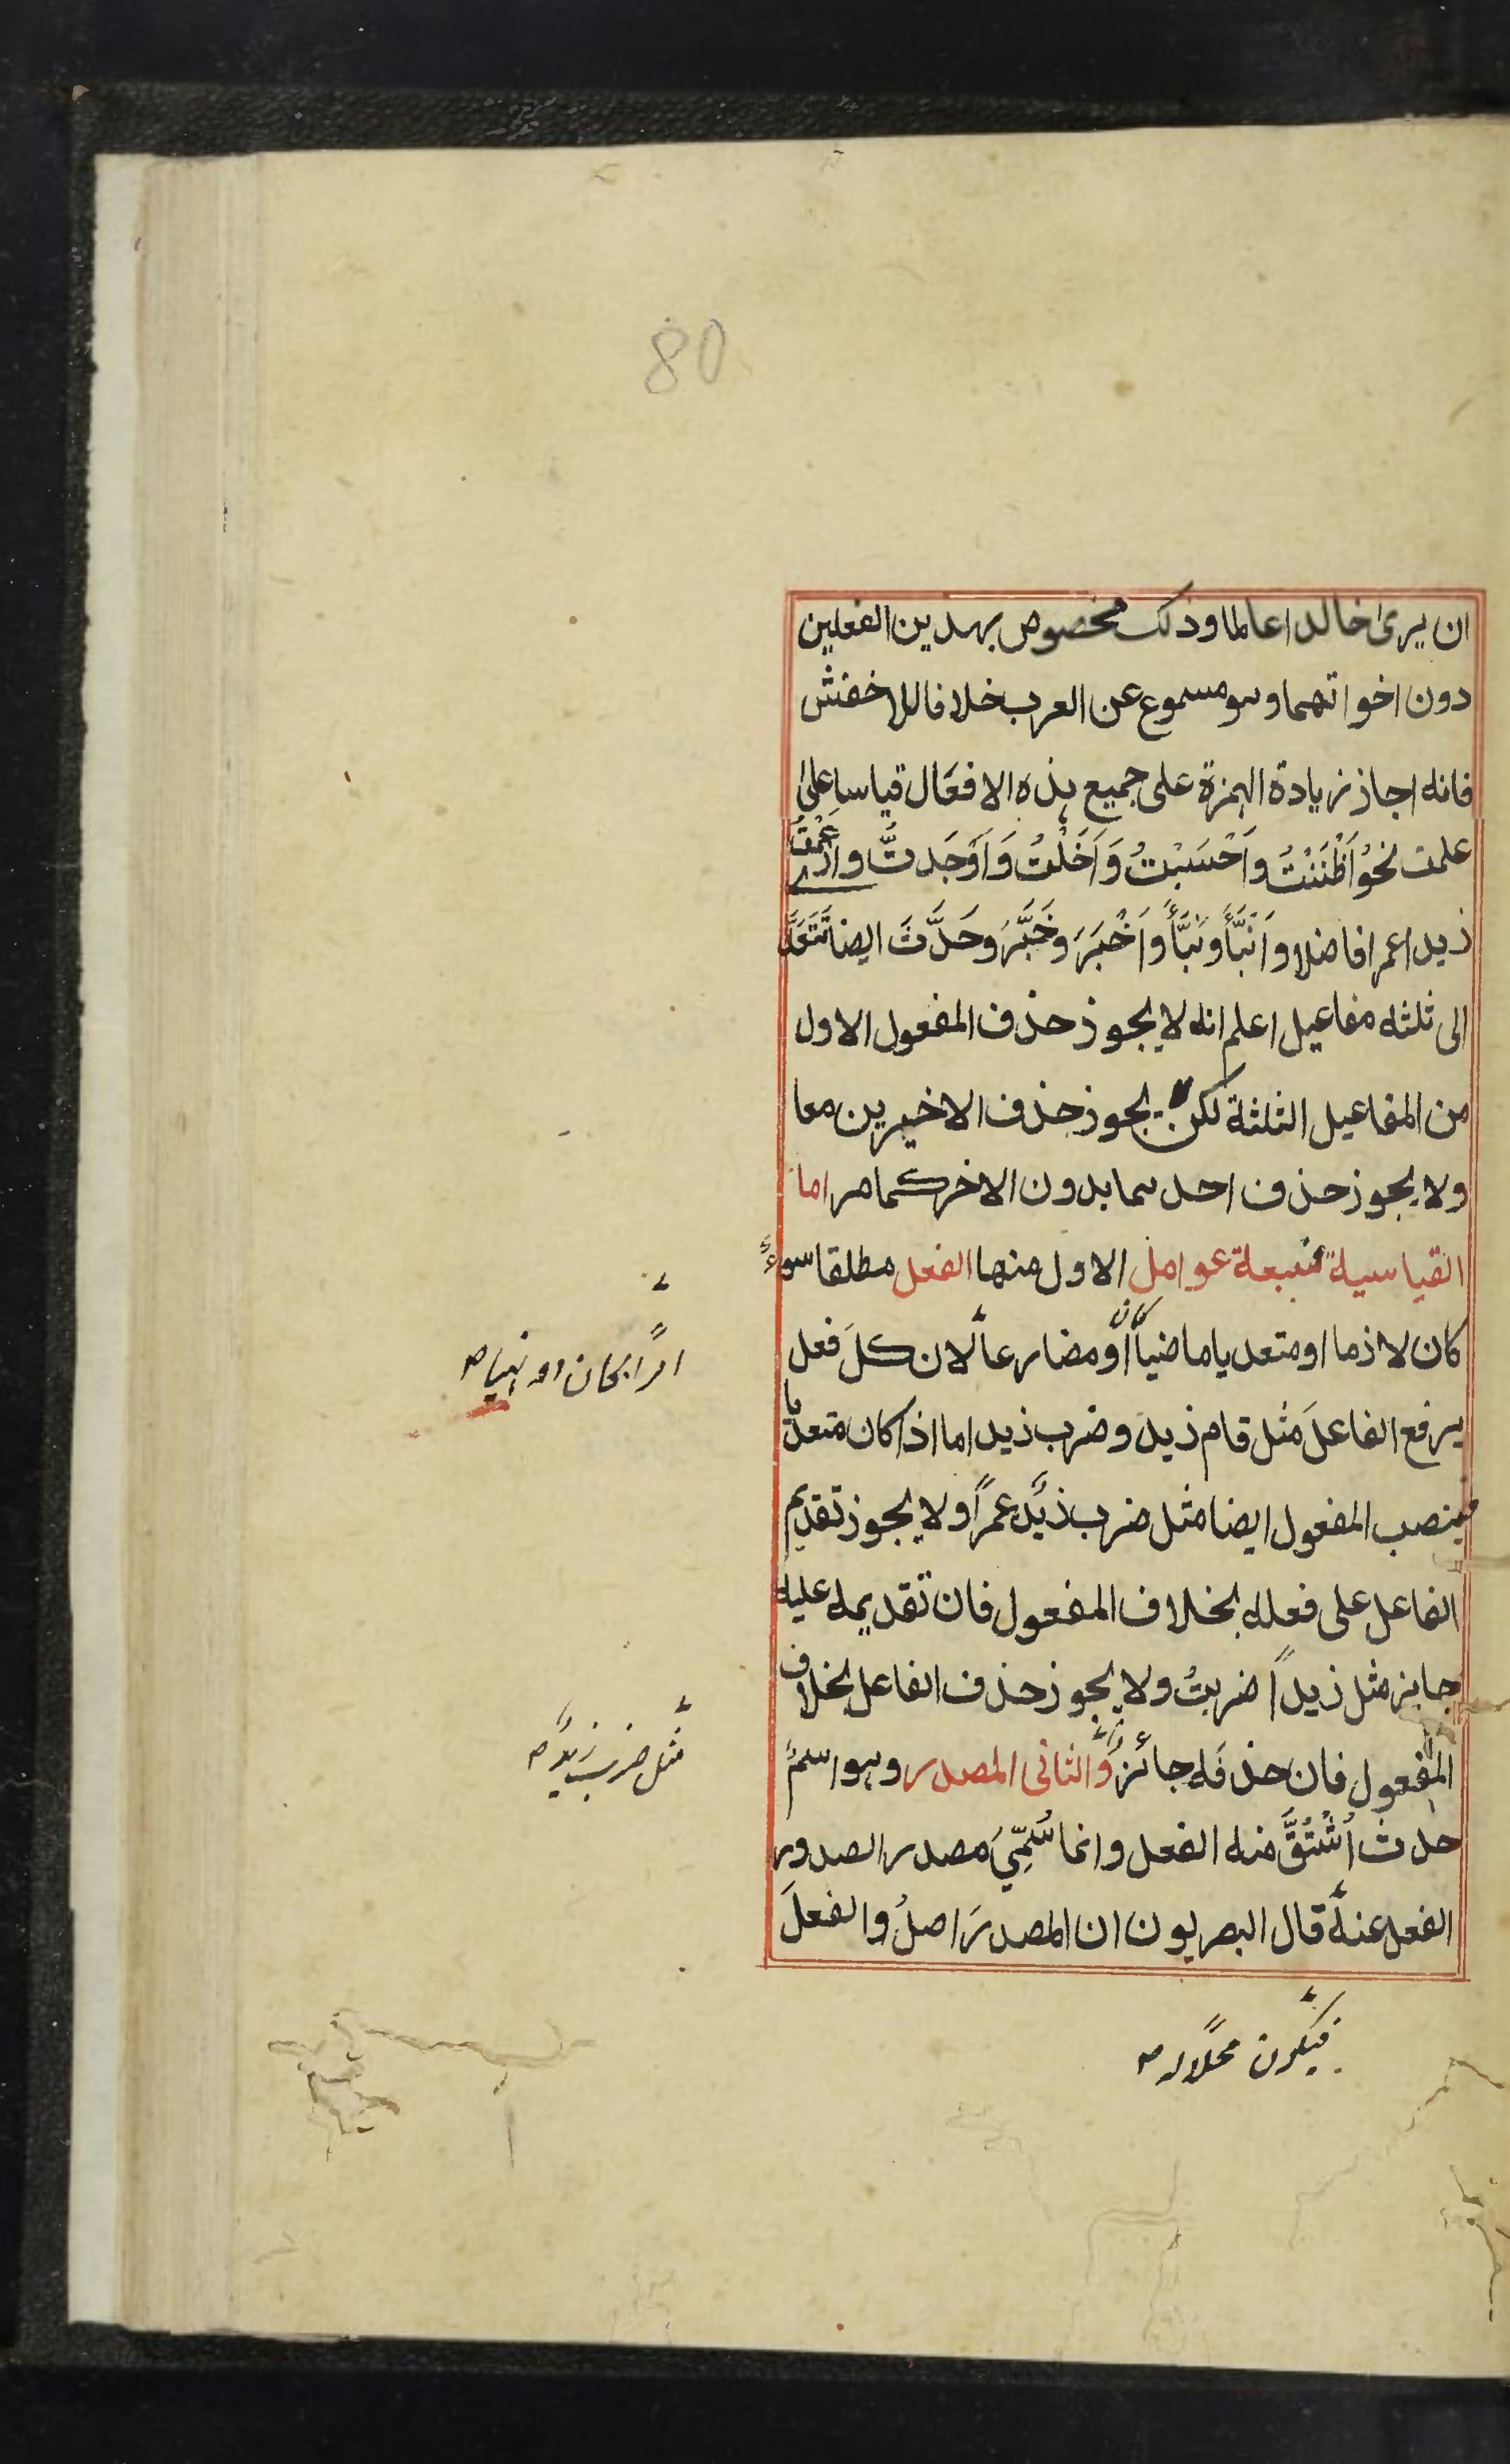 80
ان يرى خالدا عالما وذلك مخصوص بهذين الفعلين
دون اخواتهما وهو مسموع عن العرب خلافا للاخفش
فانه اجاز زيادة الهمزة على جميع هذه الافعال قياسا على
علمت نحو اَظْنَنْتُ واَحْسَبْتُ وَاَخَلْتُ وَاَوْجَدتُّ وازْعَمْتُ
زيدا عمرا فاضلا واَنْبَأَ ونَبَّأَ واَخْبَرَ وخَبَّرَ وحَدَّثَ ايضا تَتَعَدَّى
الى ثلثه مفاعيل اعلم انه لا يجوز حذف المفعول الاول
من المفاعيل الثلثة لكن يجوز حذف الاخيرين معا
ولا يجوز حذف احدهما بدون الاخر كما مر اما
القياسية فسبعة عوامل الاول منها الفعل مطلقا سواءٌ
كان لازما او متعديا ماضيًا كان أو مضارعا لان كلَ فعل
يرفع الفاعلَ مثل قام زيد وضرب زيد اما اذا كان متعديا
فينصب المفعول ايضا مثل ضرب زيدٌ عمرًا ولا يجوز تقديم
الفاعل على فعله بخلاف المفعول فان تقديمه عليه
جايز مثل زيدًا ضربتُ ولا يجوز حذف الفاعل بخلاف
المفعول فان حذفَه جائزٌ والثانى المصدر وهو اسمُ
حدث اُشْتُقَّ منه الفعل وانما سُمِّيَ مصدر الصدور
الفعل عنه قال البصريون ان المصدرَ اصلُ والفعلَ
امرًا كان او نهيا ص
مثل ضرب زيدٌ ص
فيكون محلًا له ص